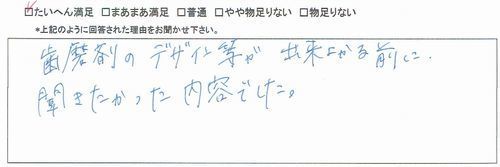 ☑たいへん満足 □まあまあ満足 □普通 □やや物足りない □物足りない
*上記のように回答された理由をお聞かせ下さい。
歯磨剤の デザイン等が 出来上がる前に、
聞きたかった 内容でした。